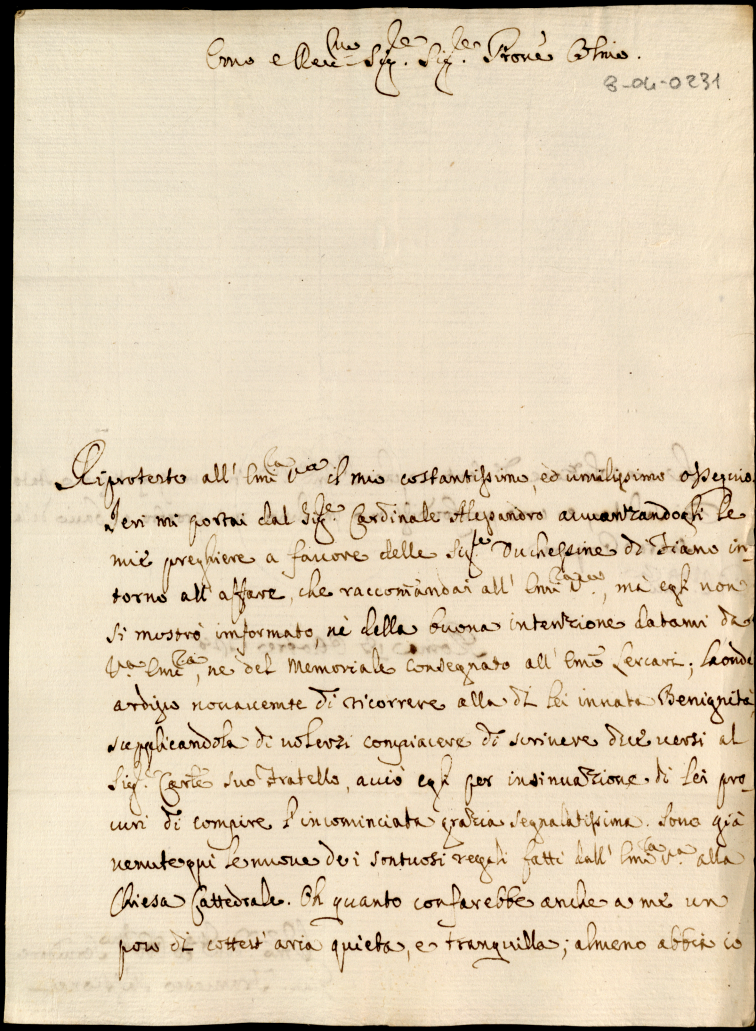 Emo e Reu.mo Sig.re Sig.re Prone Colmo.
8-04-0231
Riprotesto all' Emin.za V.ra il mio costantissimo, ed umilissimo ossequio.
Ieri mi portai dal Sig.re Cardinale Alessandro auuanzandogli le
mie preghiere a fauore delle Sig.re Duchessine di Fiano in-
torno all' affare, che raccomandai all' Emin.za V.ra, mà egli non
si mostrò imformato, nè della buona intenzione datami da
V.ra Emin.za, nè del Memoriale consegnato all' Emo Lercari; laonde
ardisco nouamente di ricorrere alla di lei innata Benignità,
supplicandola di uolersi compiacere di scriuere due uersi al
Sig.r Carle suo Fratello, acciò egli per insinuazione di lei pro-
curi di compire l' incominciata grazia segnalatissima. Sono già
uenute qui le nuoue dei sontuosi regali fatti dall' Emin.za V.ra alla
Chiesa Cattedrale. Oh quanto confarebbe anche a me un
poco di cotest' aria quieta, e tranquilla; almeno abbia io